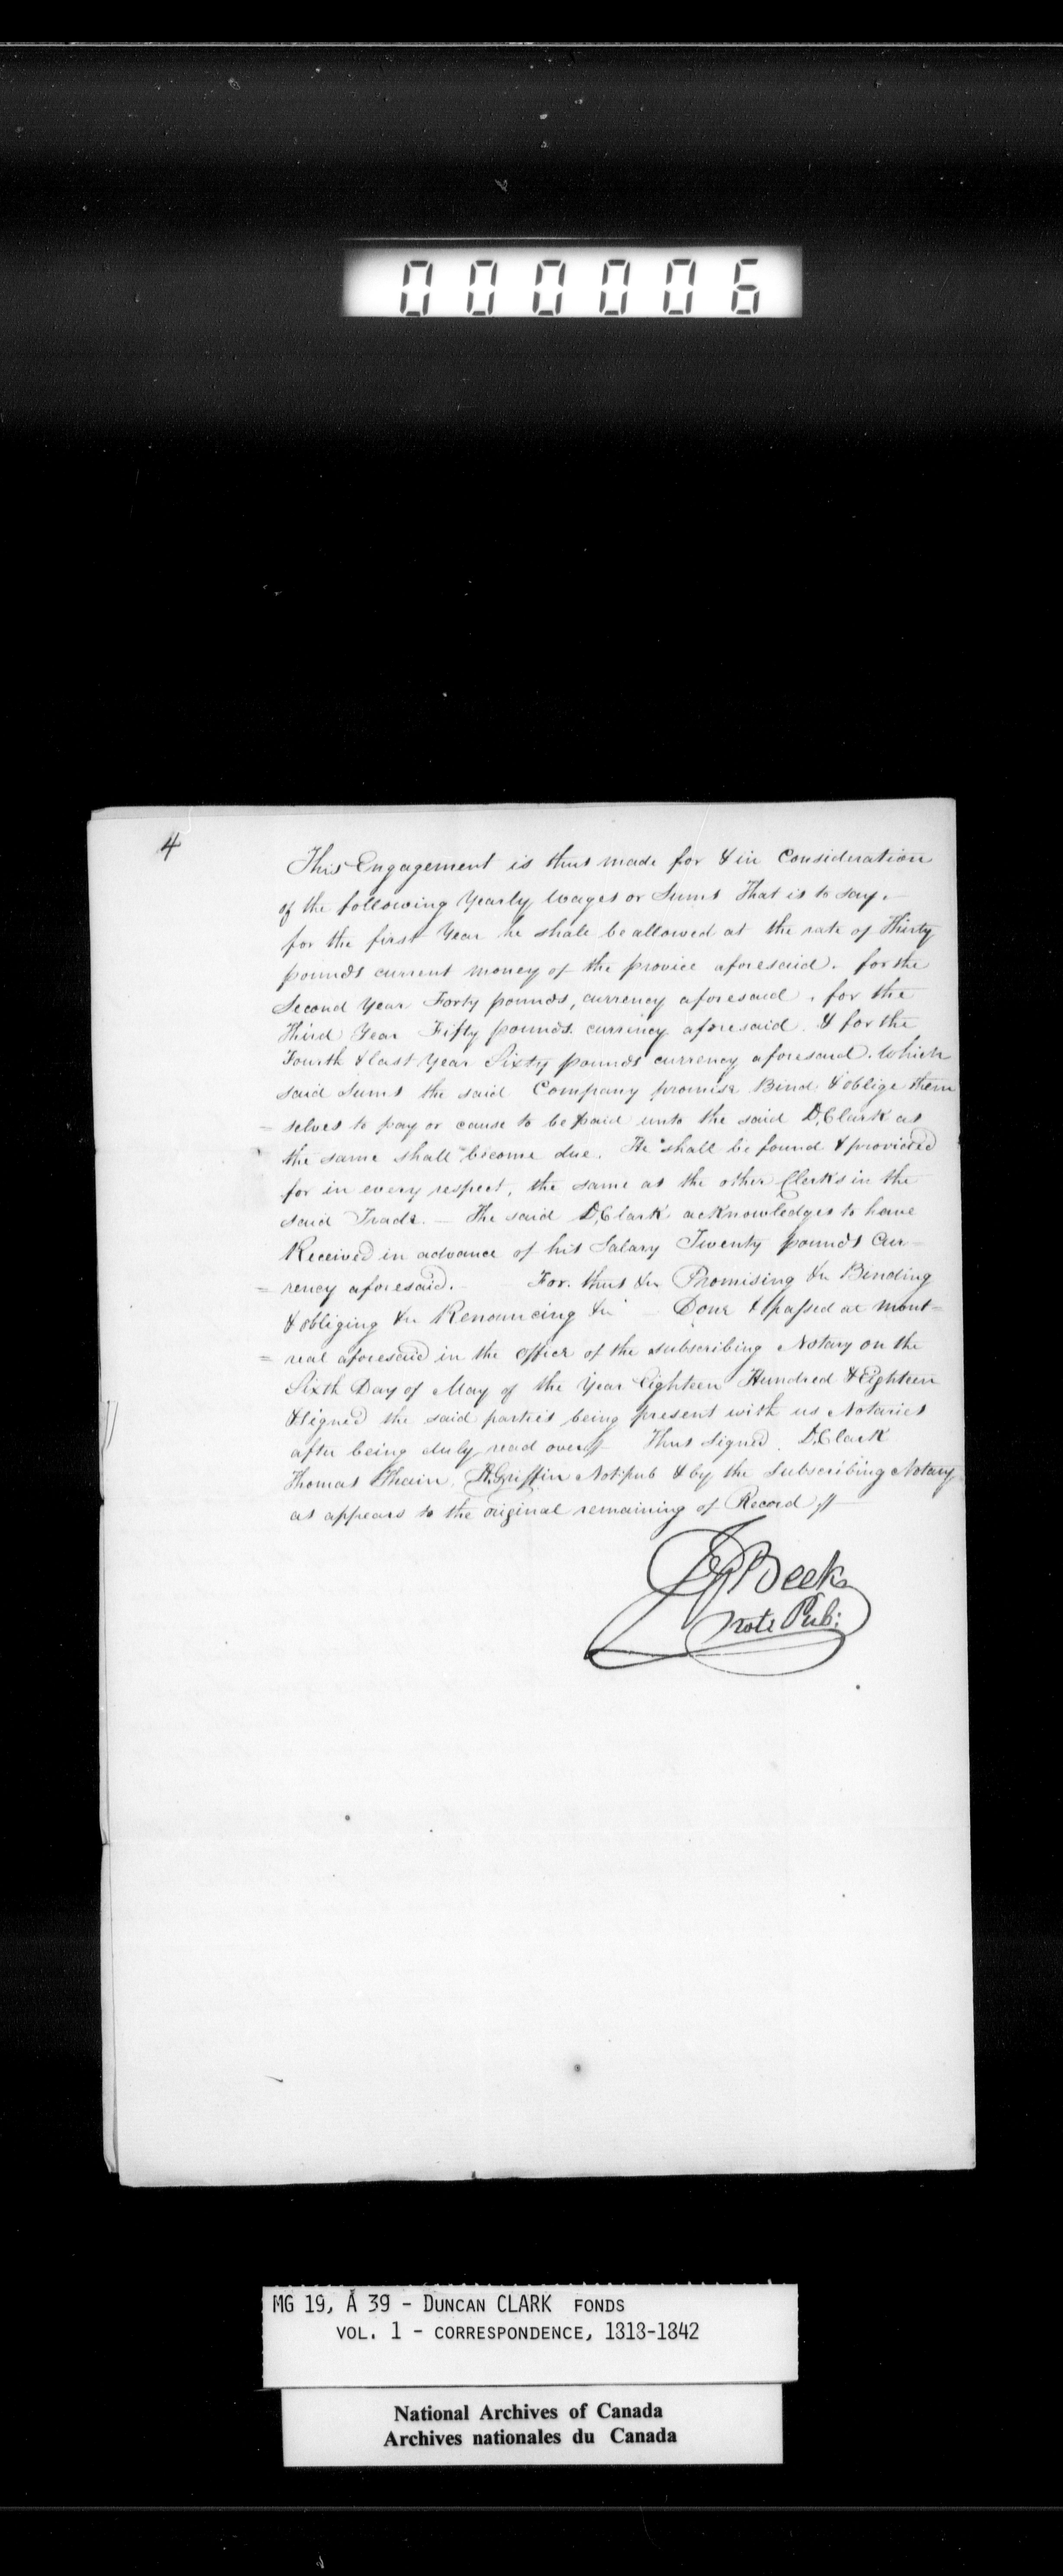 000006
4
This Engagement is thus made for & in Consideration
of the following Yearly wages or Sums That is to say.
for the first Year he shall be allowed at the rate of Thirty
pounds current money of the provice aforesaid. for the
Second Year Forty pounds, currency aforesaid. for the
Third Year Fifty pounds. currency aforesaid. & for the
Fourth & last Year Sixty pounds currency aforesaid. Which
said sums the said Company promise Bind & oblige them
= selves to pay or cause to be paid unto the said D. Clark as
the same shall become due. He shall be found & provided
for in every respect, the same as the other Clerks in the
said Trade. — The said D. Clark acknowledges to have
Received in advance of his Salary Twenty pounds Cur
= rency aforesaid. For. thus &c Promising &c Binding
& obliging &c Renouncing &c — Done & passed at Mont=
= real aforesaid in the office of the subscribing Notary on the
Sixth Day of May of the Year Eighteen Hundred & Eighteen
& signed the said parties being present with us Notaries
after being duly read over Thus signed. D. Clark
Thomas Thain, H. Griffin Not: pub & by the Subscribing Notary
as appears to the original remaining of Record
Beek
Note Pub:
MG 19, A 39 - DUNCAN CLARK FONDS
VOL. 1 - CORRESPONDENCE, 1818-1842
National Archives of Canada
Archives nationales du Canada